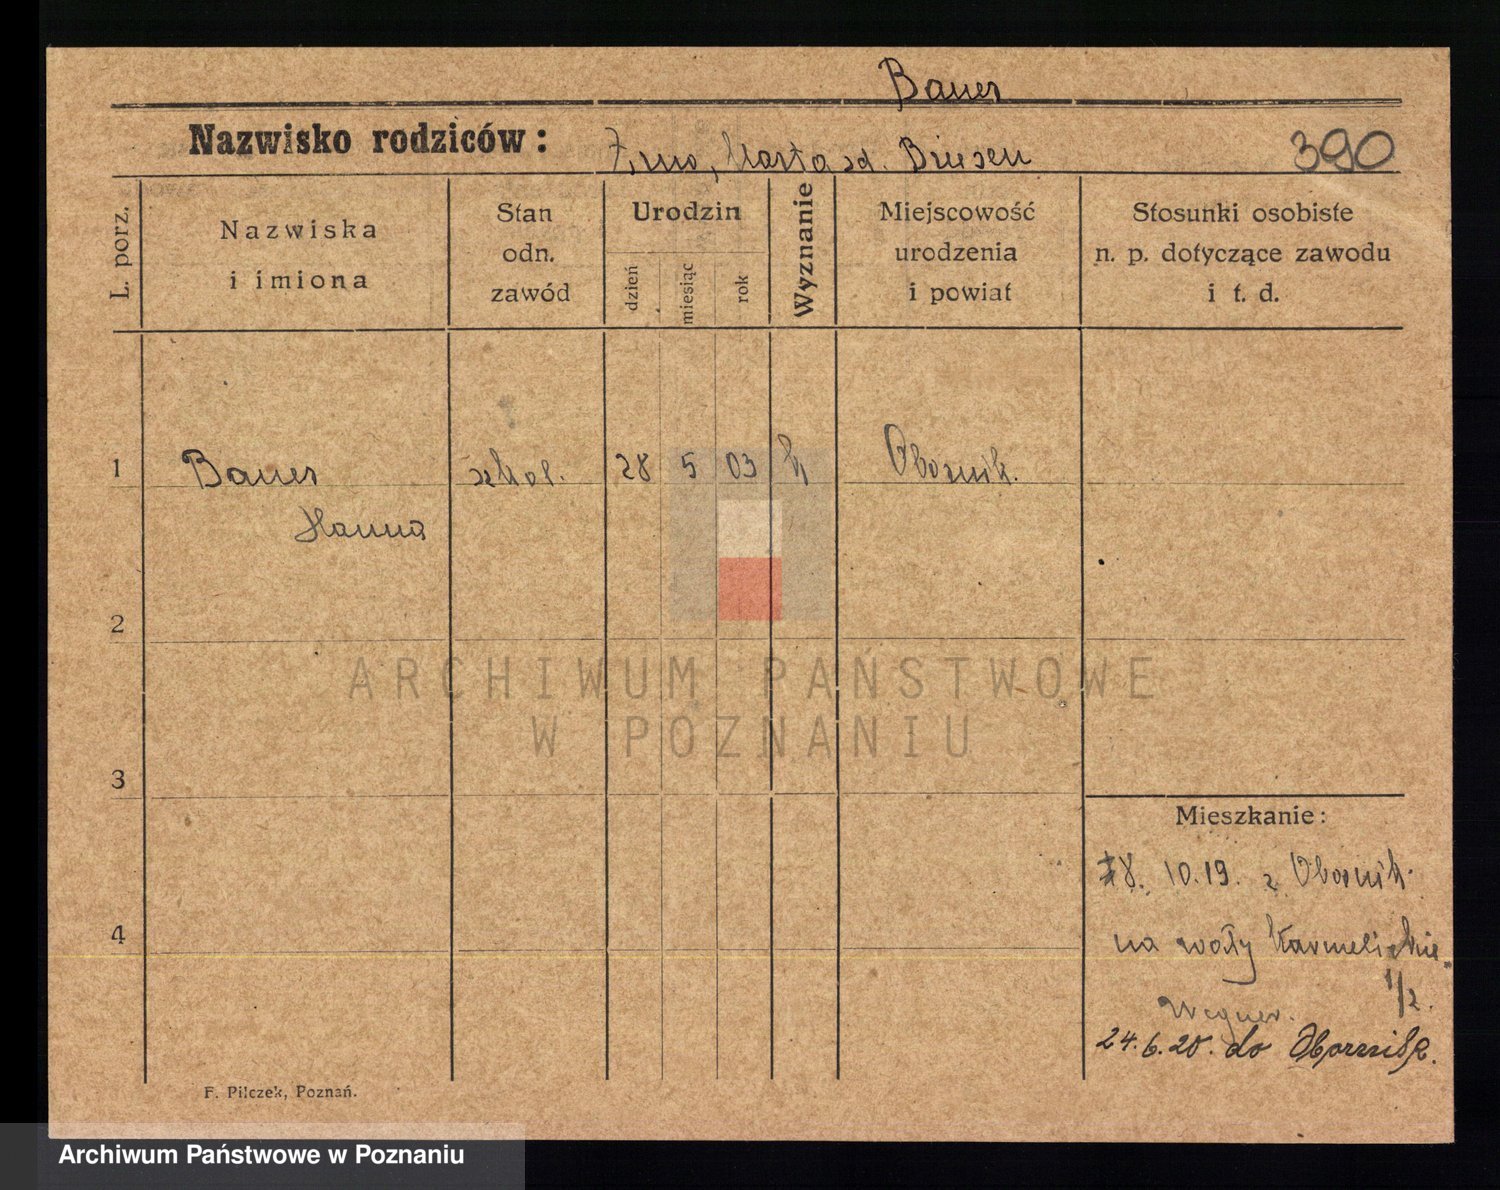 Bauer
Nazwisko rodziców:
Marta zd. Briesen
390
L. porz.
Nazwiska
i imiona
Stan
odn.
zawód
Urodzin
dzień
miesiąc
rok
Wyznanie
Miejscowość
urodzenia
i powiat
Stosunki osobiste
n. p. dotyczące zawodu
i t. d.
1
Bauer
szkol.
28
5
03
Obornik.
Hanna
2
ARCHIWUM PAŃSTWOWE
W POZNANIU
3
Mieszkanie:
8. 10.19. z Obornik.
4
na wały Karmelickie
1/2.
Wegner.
24.6.20. do Obornik.
F. Pilczek, Poznań.
Archiwum Państwowe w Poznaniu